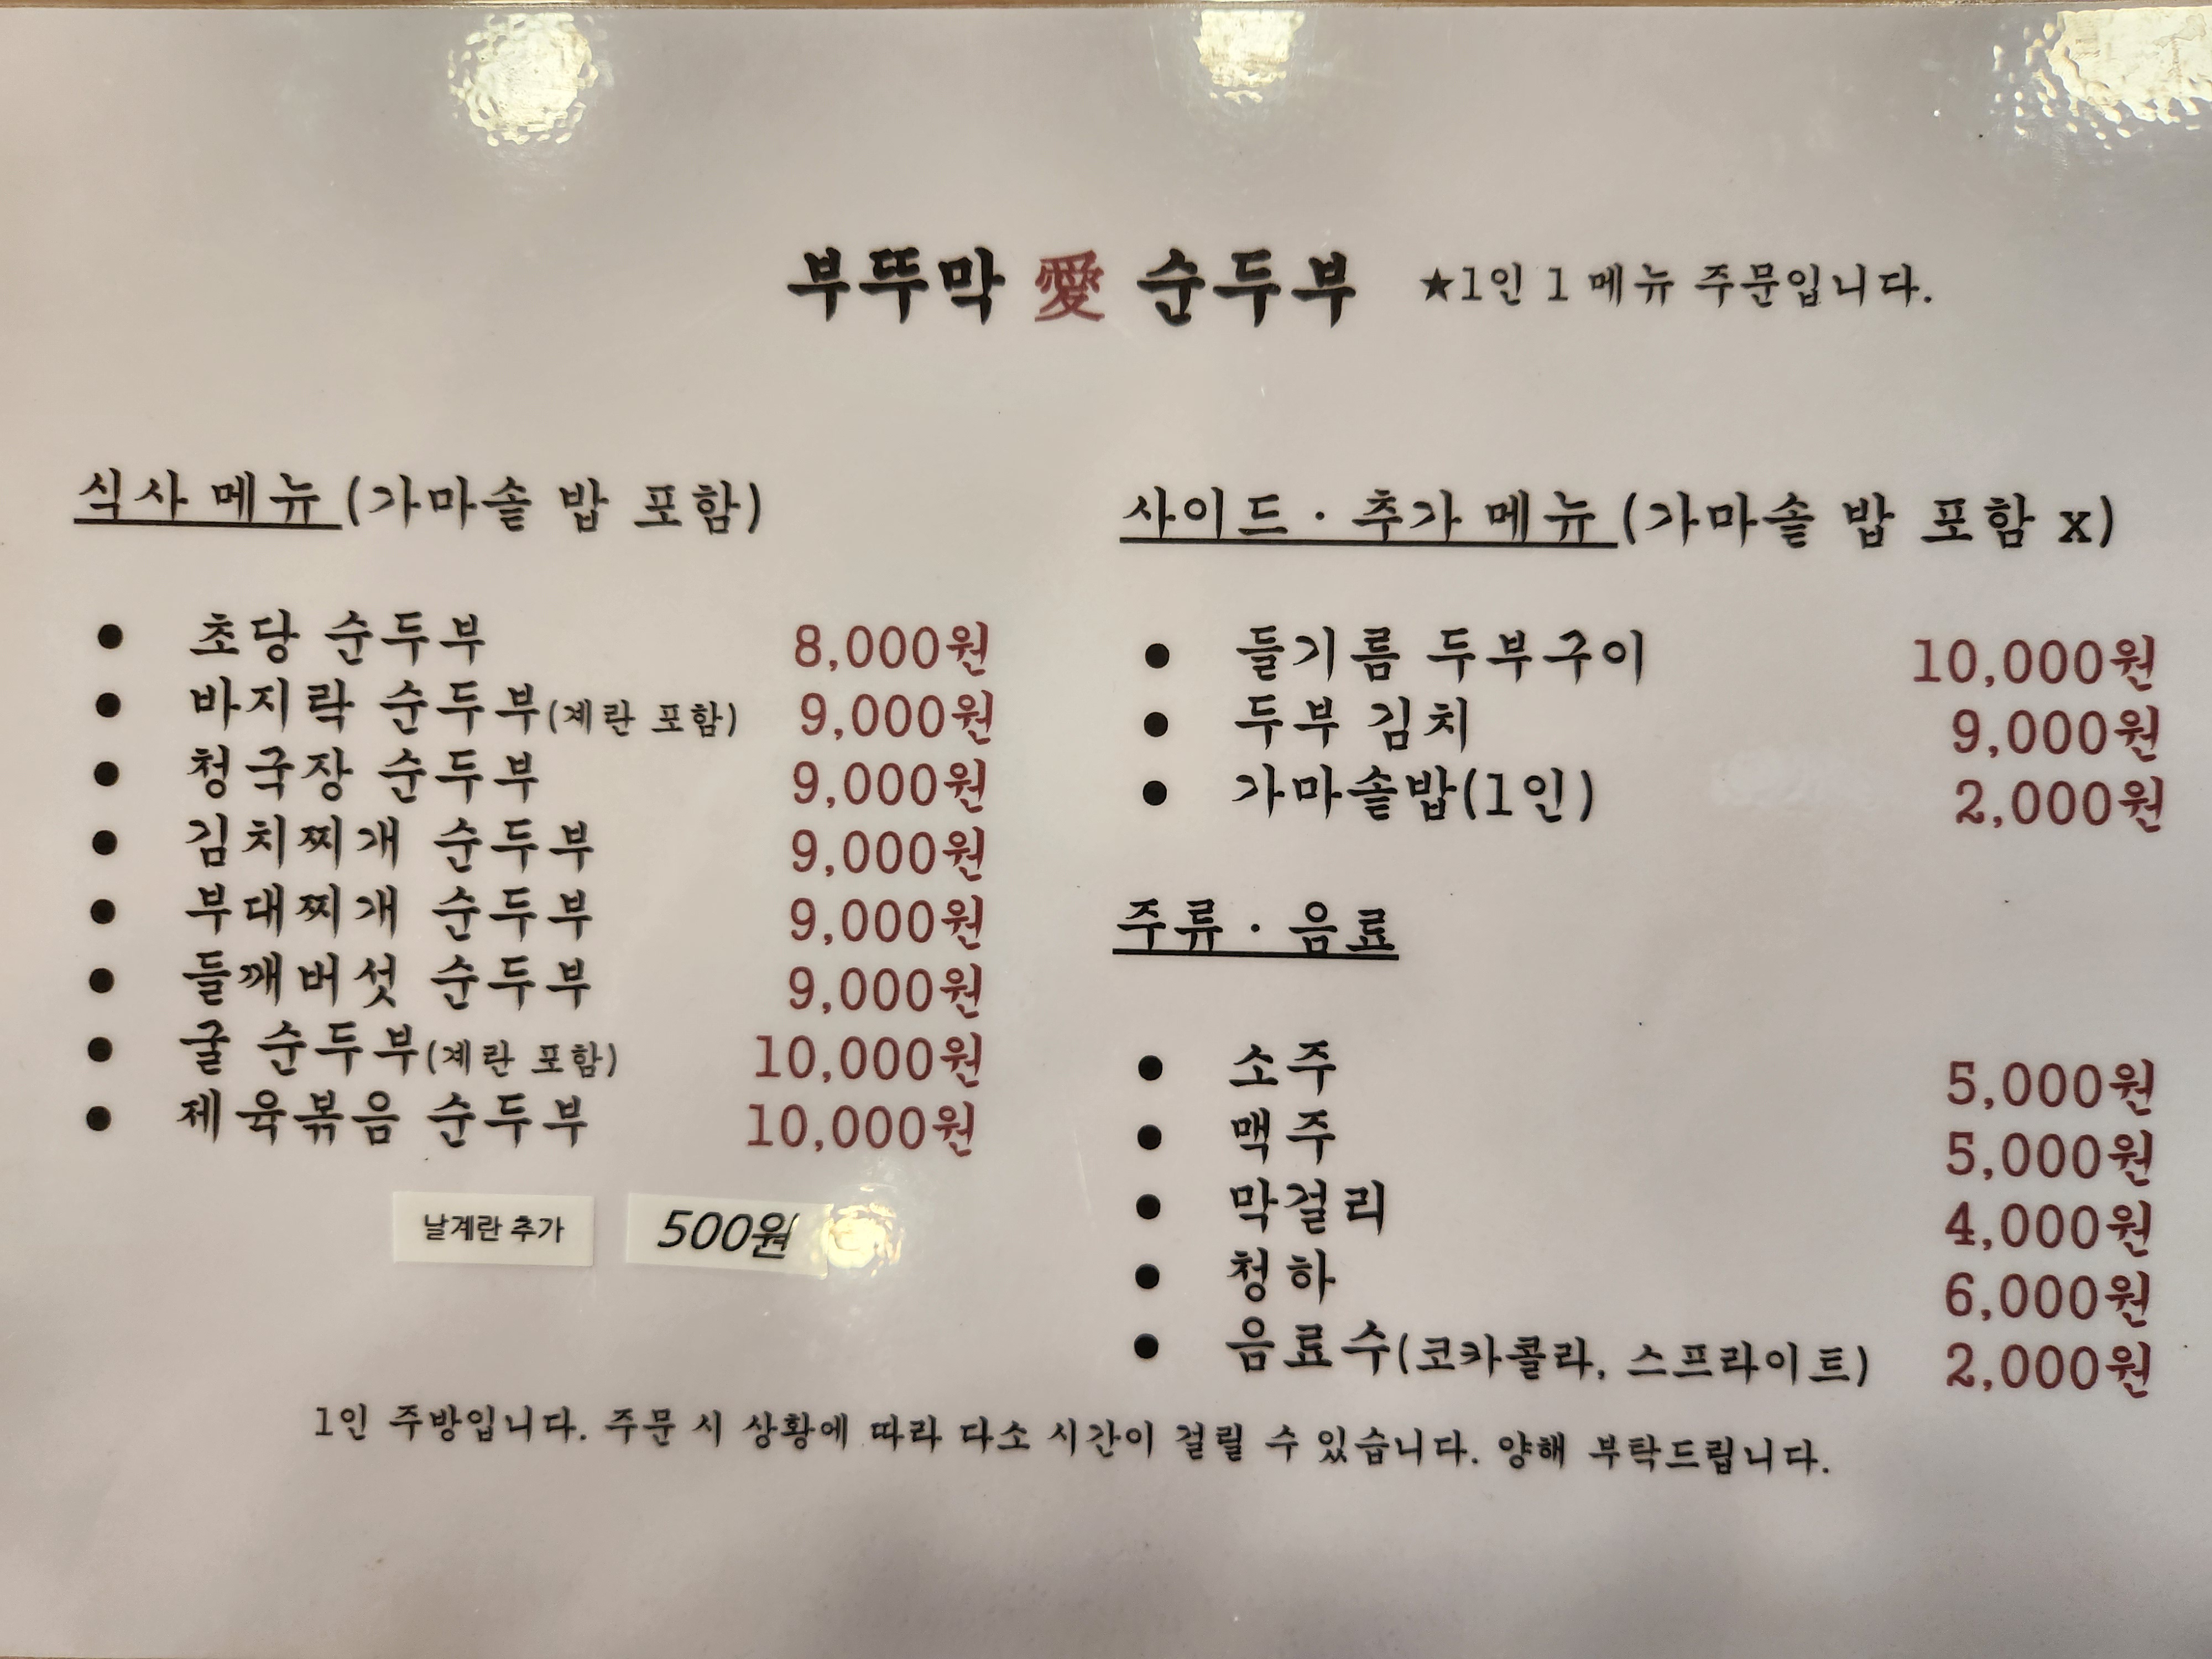 부뚜막 愛 순두부 ★1인 1 메뉴 주문입니다.
식사 메뉴 (가마솥 밥 포함)
● 초당 순두부 8,000원
● 바지락 순두부(계란 포함) 9,000원
● 청국장 순두부 9,000원
● 김치찌개 순두부 9,000원
● 부대찌개 순두부 9,000원
● 들깨버섯 순두부 9,000원
● 굴 순두부(계란 포함) 10,000원
● 제육볶음 순두부 10,000원
날계란 추가 500원
사이드 · 추가 메뉴 (가마솥 밥 포함 x)
● 들기름 두부구이 10,000원
● 두부 김치 9,000원
● 가마솥밥(1인) 2,000원
주류 · 음료
● 소주 5,000원
● 맥주 5,000원
● 막걸리 4,000원
● 청하 6,000원
● 음료수(코카콜라, 스프라이트) 2,000원
1인 주방입니다. 주문 시 상황에 따라 다소 시간이 걸릴 수 있습니다. 양해 부탁드립니다.